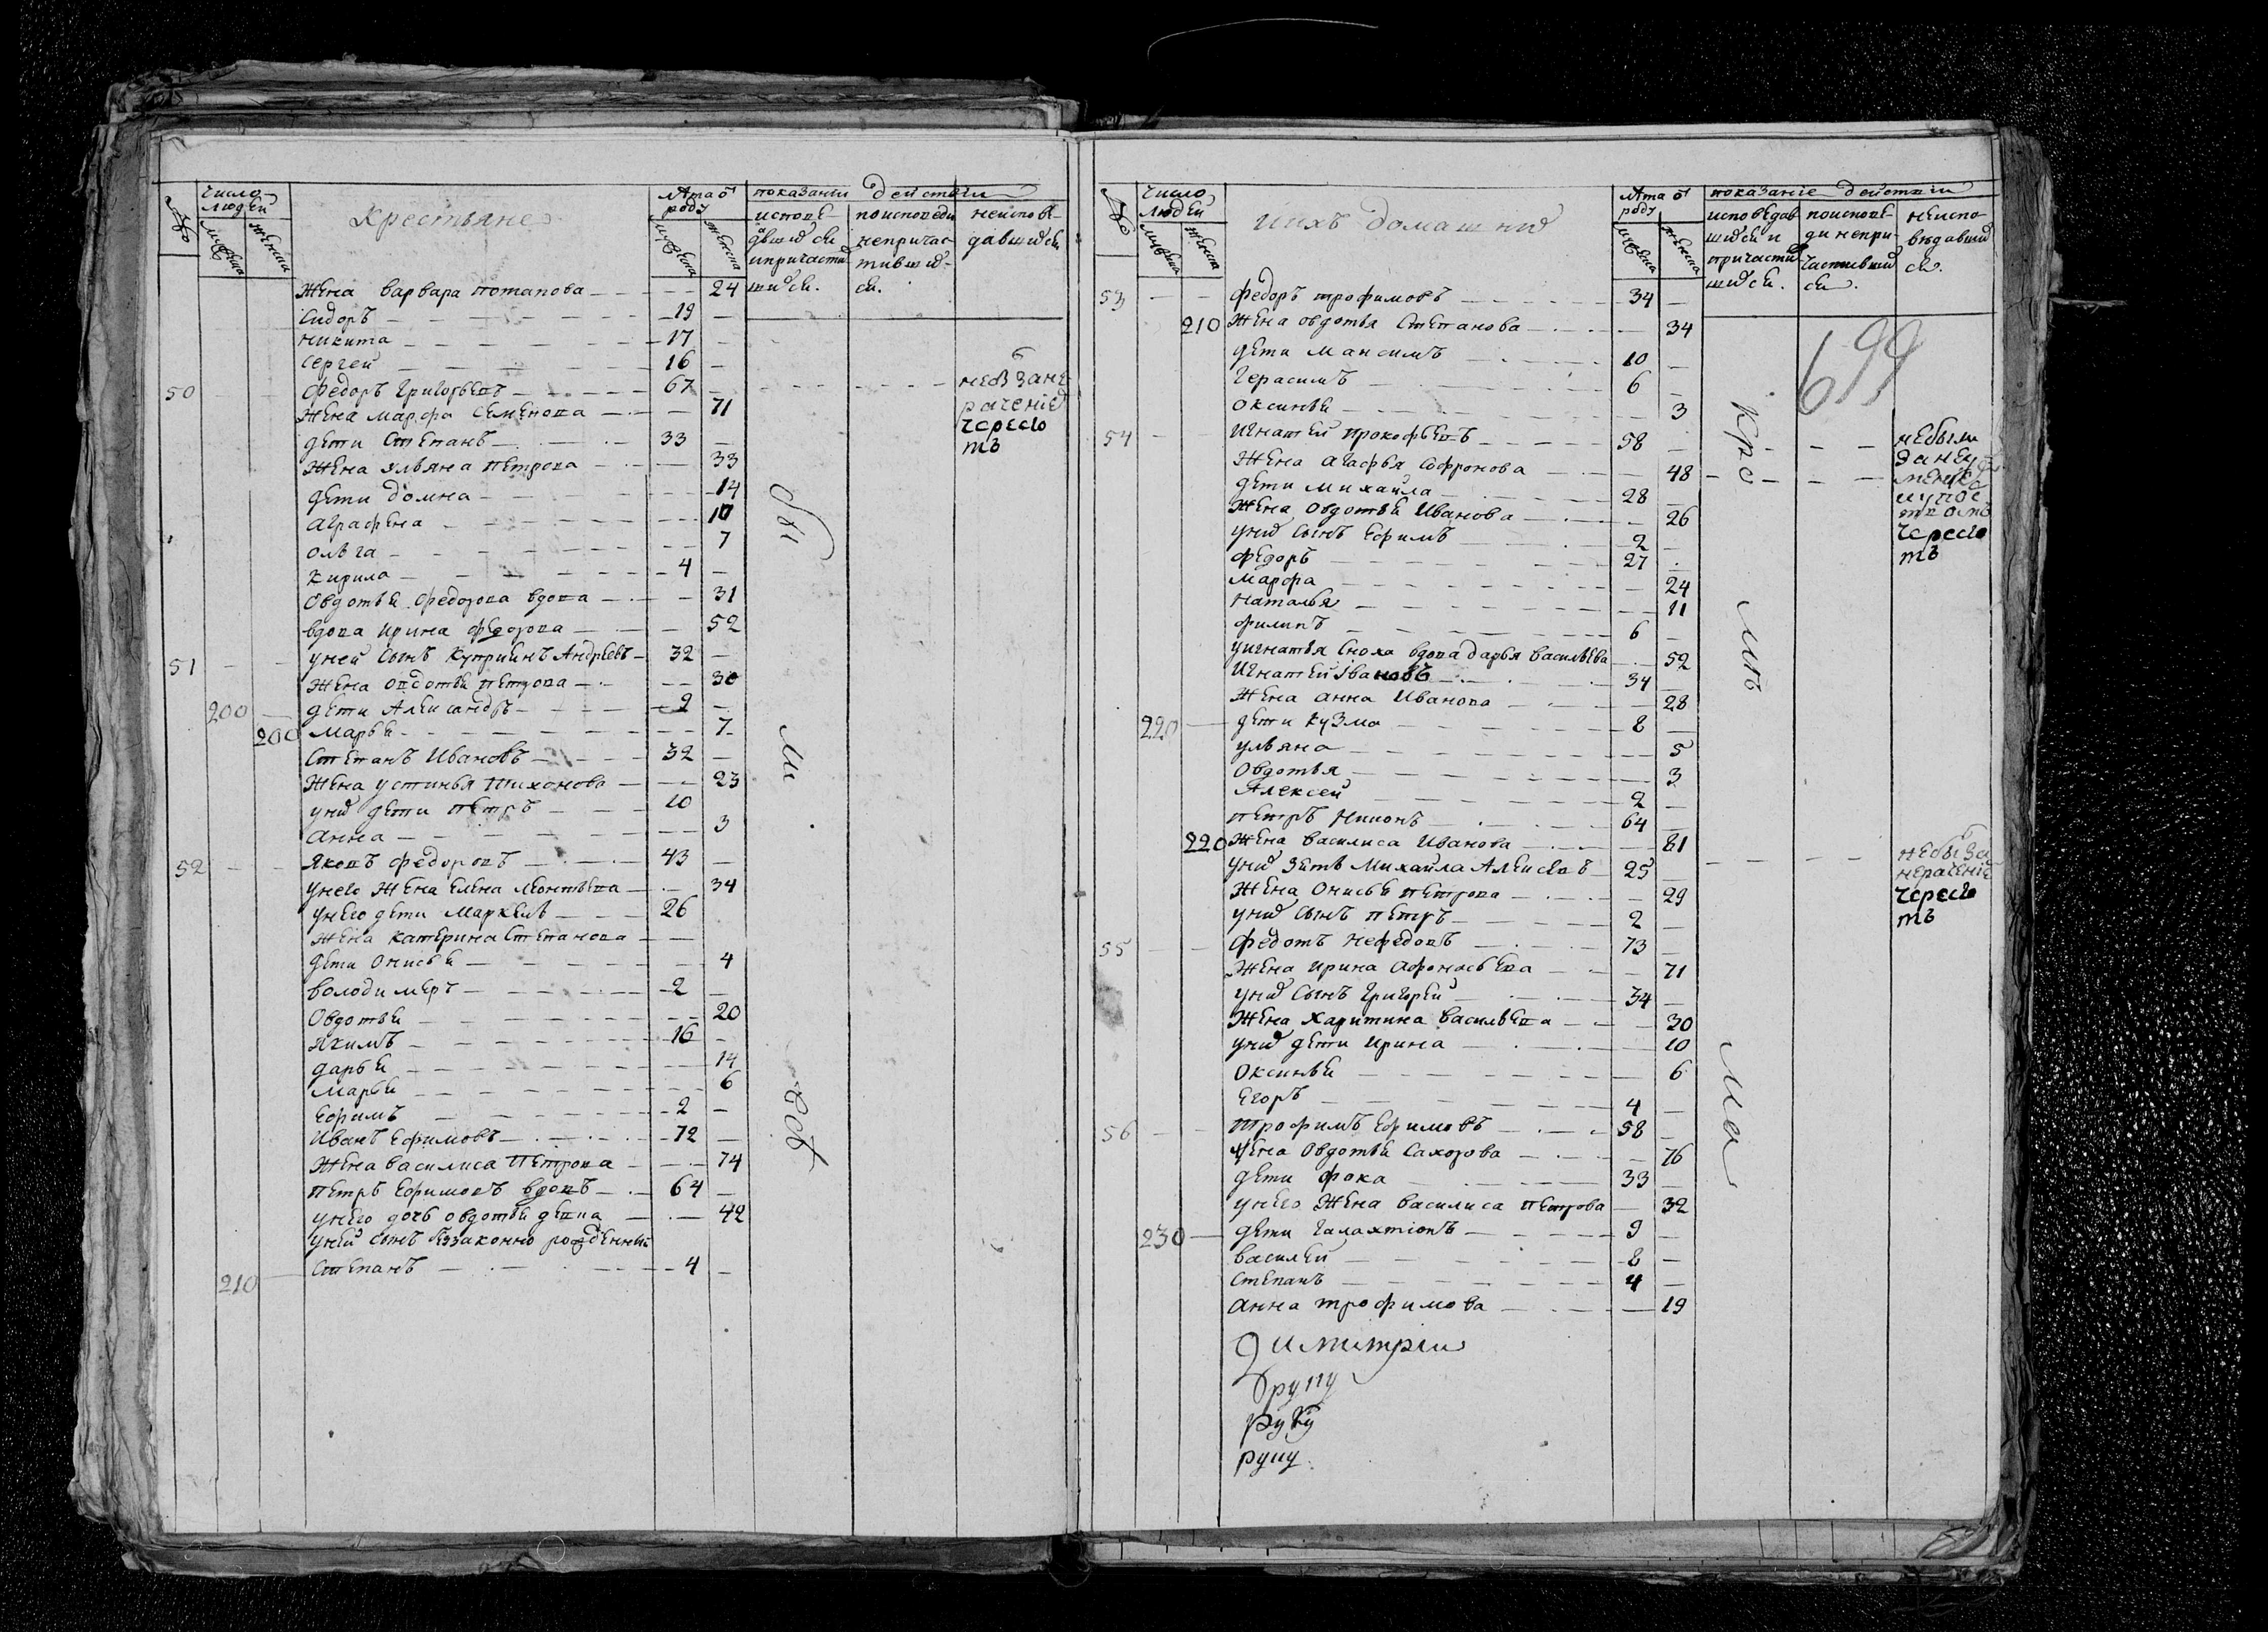 №
число людей
мужеска
женска
Крестьяне
лѣта ѿ роду
мужеска
женска
показаніи действъи
исповедавшихся и причастившихся.
по исповеди непричастившихся.
неисповедавшихся
Жена варвара потапова — 24
Сидоръ — 19
Никита — 17
Сергей — 16
50 Федоръ Григорьевъ — 67
Жена марфа Семенова — 71
дети Степанъ — 33
Жена ульяна петрова — 33
дети домна — 14
Аграфена — 10
Ольга — 7
Кирила — 4
Овдотья Федорова вдова — 31
вдова Ирина федорова — 52
51 уней сынъ Куприянъ Андреевъ — 32
Жена овдотья петрова — 30
200 дети Александръ — 2
200 Марья — 7
Степанъ Ивановъ — 32
Жена устинья тихонова — 23
уних дети петръ — 10
Анна — 3
52 Яковъ федоровъ — 43
унего Жена Елена леонтьева — 34
унего дети Маркелъ — 26
Жена катерина Степанова —
дети Онисья — 4
володимеръ — 2
Овдотья — 20
Якимъ — 16
дарья — 14
Марья — 6
Ефимъ — 2
Иванъ Ефимовъ — 72
Жена василиса петрова — 74
петръ Ефимовъ вдовъ — 64
унего дочь овдотья девка — 42
уней сынъ беззаконно рожденный
210 Степанъ — 4
чрес го
тъ
№
число людей
мужеска
женска
ихъ домашних
лѣта ѿ роду
мужеска
женска
показаніе действъи
исповедавшихся и причастившихся.
по исповеди непричастившихся.
неисповедавшихся.
699
53 федоръ трофимовъ — 34
210 Жена овдотья Степанова — 34
дети Максимъ — 10
Герасимъ — 6
Оксинья — 3
54 Игнатей прокофьевъ — 58
Жена агафья Софронова — 48
дети Михайла — 28
Жена Овдотья Иванова — 26
уних сынъ Ефимъ — 2
федоръ — 27
марфа — 24
Наталья — 11
филипъ — 6
уигнатья сноха вдова дарья васильева — 52
Игнатей Ивановъ — 34
Жена анна Иванова — 28
220 дети кузма — 8
ульяна — 5
Овдотья — 3
Алексей — 2
петръ Никонъ — 64
220 Жена василиса Иванова — 81
уних зять Михайла Алексеевъ — 25
Жена Онисья петрова — 29
уних сынъ петръ — 2
55 федотъ Нефедовъ — 73
Жена Ирина Афонасьева — 71
уних сынъ Григорей — 34
Жена Харитина васильева — 30
уних дети Ирина — 10
Оксинья — 6
Егоръ — 4
56 трофимъ Ефимовъ — 58
Жена Овдотья Сахорова — 76
дети фока — 33
унего Жена василиса петрова — 32
230 дети Галахтіонъ — 9
василей — 8
степанъ — 4
анна трофимова — 19
небыли
чрес го
тъ
чрес го
тъ
димитрии
руку
руку